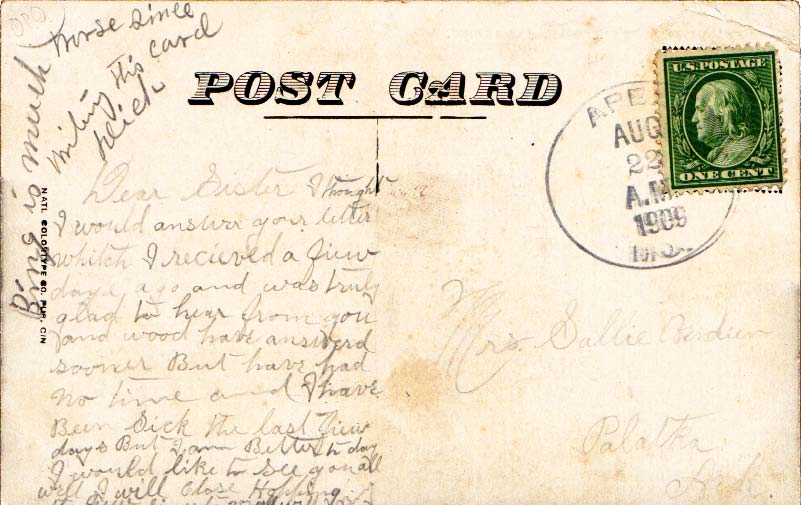 DPO
worse since
writing this card
Dick
is much
POST CARD
U.S. POSTAGE
ONE CENT
APE
AUG
22
A.M.
1909
MO.
NATL COLORTYPE CO. PUB. CIN
Dear Sister I thought
I would answer your letter
whitch I recieved a fiew
days ago and was truly
glad to hear from you
and wood have answerd
sooner But have had
no time and I have
Been Sick the last fiew
days But I am Better to day
I would like to see you all
well I will Close Hopping
Mrs. Sallie
Palatka
Ark